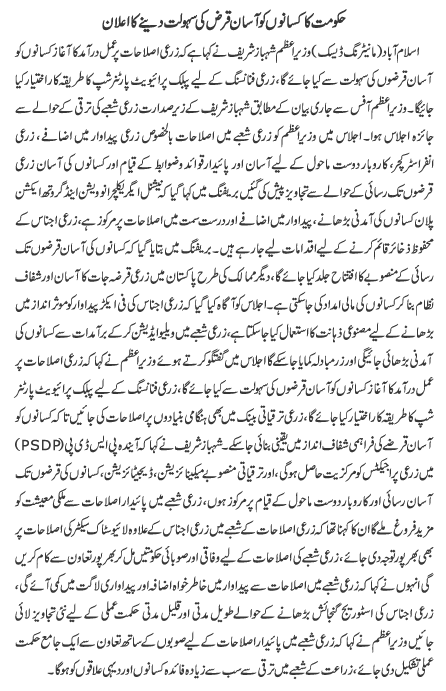 حکومت کا کسانوں کو آسان قرض کی سہولت دینے کا اعلان
اسلام آباد (مانیٹرنگ ڈیسک) وزیر اعظم شہباز شریف نے کہا ہے کہ زرعی اصلاحات پر عمل درآمد کا آغاز کسانوں کو
آسان قرضوں کی سہولت سے کیا جائے گا، زرعی فنانسنگ کے لیے پبلک پرائیویٹ پارٹنر شپ کا طریقہ کار اختیار کیا
جائیگا۔ وزیر اعظم آفس سے جاری بیان کے مطابق شہباز شریف کے زیر صدارت زرعی شعبے کی ترقی کے حوالے سے
جائزہ اجلاس ہوا۔ اجلاس میں وزیر اعظم کو زرعی شعبے میں اصلاحات بالخصوص زرعی پیداوار میں اضافے، زرعی
انفراسٹرکچر، کاروبار دوست ماحول کے لیے آسان اور پائیدار قوائد و ضوابط کے قیام اور کسانوں کی آسان زرعی
قرضوں تک رسائی کے حوالے سے تجاویز پیش کی گئیں، بریفنگ میں کہا گیا کہ نیشنل ایگریکلچر انوویشن اینڈ گروتھ ایکشن
پلان کسانوں کی آمدنی بڑھانے، پیداوار میں اضافے اور درست سمت میں اصلاحات پر مرکوز ہے، زرعی اجناس کے
محفوظ ذخائر قائم کرنے کے لیے اقدامات لیے جا رہے ہیں۔ بریفنگ میں بتایا گیا کہ کسانوں کی آسان قرضوں تک
رسائی کے منصوبے کا افتتاح جلد کیا جائے گا، دیگر ممالک کی طرح پاکستان میں زرعی قرضہ جات کا آسان اور شفاف
نظام بنا کر کسانوں کی مالی امداد کی جا سکتی ہے۔ اجلاس کو آگاہ کیا گیا کہ زرعی اجناس کی فی ایکڑ پیداوار کو موثر انداز میں
بڑھانے کے لیے مصنوعی ذہانت کا استعمال کیا جاسکتا ہے، زرعی شعبے میں ویلیو ایڈیشن کر کے برآمدات سے کسانوں کی
آمدنی بڑھائی جائیگی اور زرمبادلہ کمایا جاسکے گا اجلاس میں گفتگو کرتے ہوئے وزیر اعظم نے کہا کہ زرعی اصلاحات پر
عمل درآمد کا آغاز کسانوں کو آسان قرضوں کی سہولت سے کیا جائے گا، زرعی فنانسنگ کے لیے پبلک پرائیویٹ پارٹنر
شپ کا طریقہ کار اختیار کیا جائے گا، زرعی ترقیاتی بینک میں بھی ہنگامی بنیادوں پر اصلاحات کی جائیں تاکہ کسانوں کو
آسان قرضے کی فراہمی شفاف انداز میں یقینی بنائی جاسکے۔ شہباز شریف نے کہا کہ آیندہ پی ایس ڈی پی (PSDP)
میں زرعی پراجیکٹس کو مرکزیت حاصل ہوگی، اور ترقیاتی منصوبے میکینائزیشن، ڈیجیٹائزیشن، کسانوں کی قرضوں تک
آسان رسائی اور کاروبار دوست ماحول کے قیام پر مرکوز ہوں، زرعی شعبے میں پائیدار اصلاحات سے ملکی معیشت کو
مزید فروغ ملے گا ان کا کہنا تھا کہ زرعی اصلاحات کے شعبے میں زرعی اجناس کے علاوہ لائیو سٹاک سیکٹر کی اصلاحات پر
بھی بھرپور توجہ دی جائے، زرعی شعبے کی اصلاحات کے لیے وفاقی اور صوبائی حکومتیں مل کر بھرپور تعاون سے کام کریں
گی انہوں نے کہا کہ زرعی شعبے میں اصلاحات سے پیداوار میں خاطر خواہ اضافہ اور پیداواری لاگت میں کمی آئے گی،
زرعی اجناس کی اسٹوریج گنجائش بڑھانے کے حوالے طویل مدتی اور قلیل مدتی حکمت عملی کے لیے نئی تجاویز لائی
جائیں وزیر اعظم نے کہا کہ زرعی شعبے میں پائیدار اصلاحات کے لیے صوبوں کے ساتھ تعاون سے ایک جامع حکمت
عملی تشکیل دی جائے، زراعت کے شعبے میں ترقی سے سب سے زیادہ فائدہ کسانوں اور دیہی علاقوں کو ہوگا۔